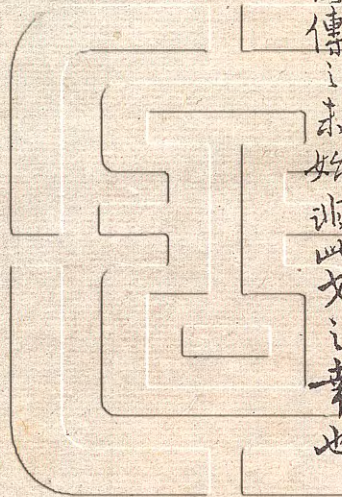 傳之未始非此女之幸也